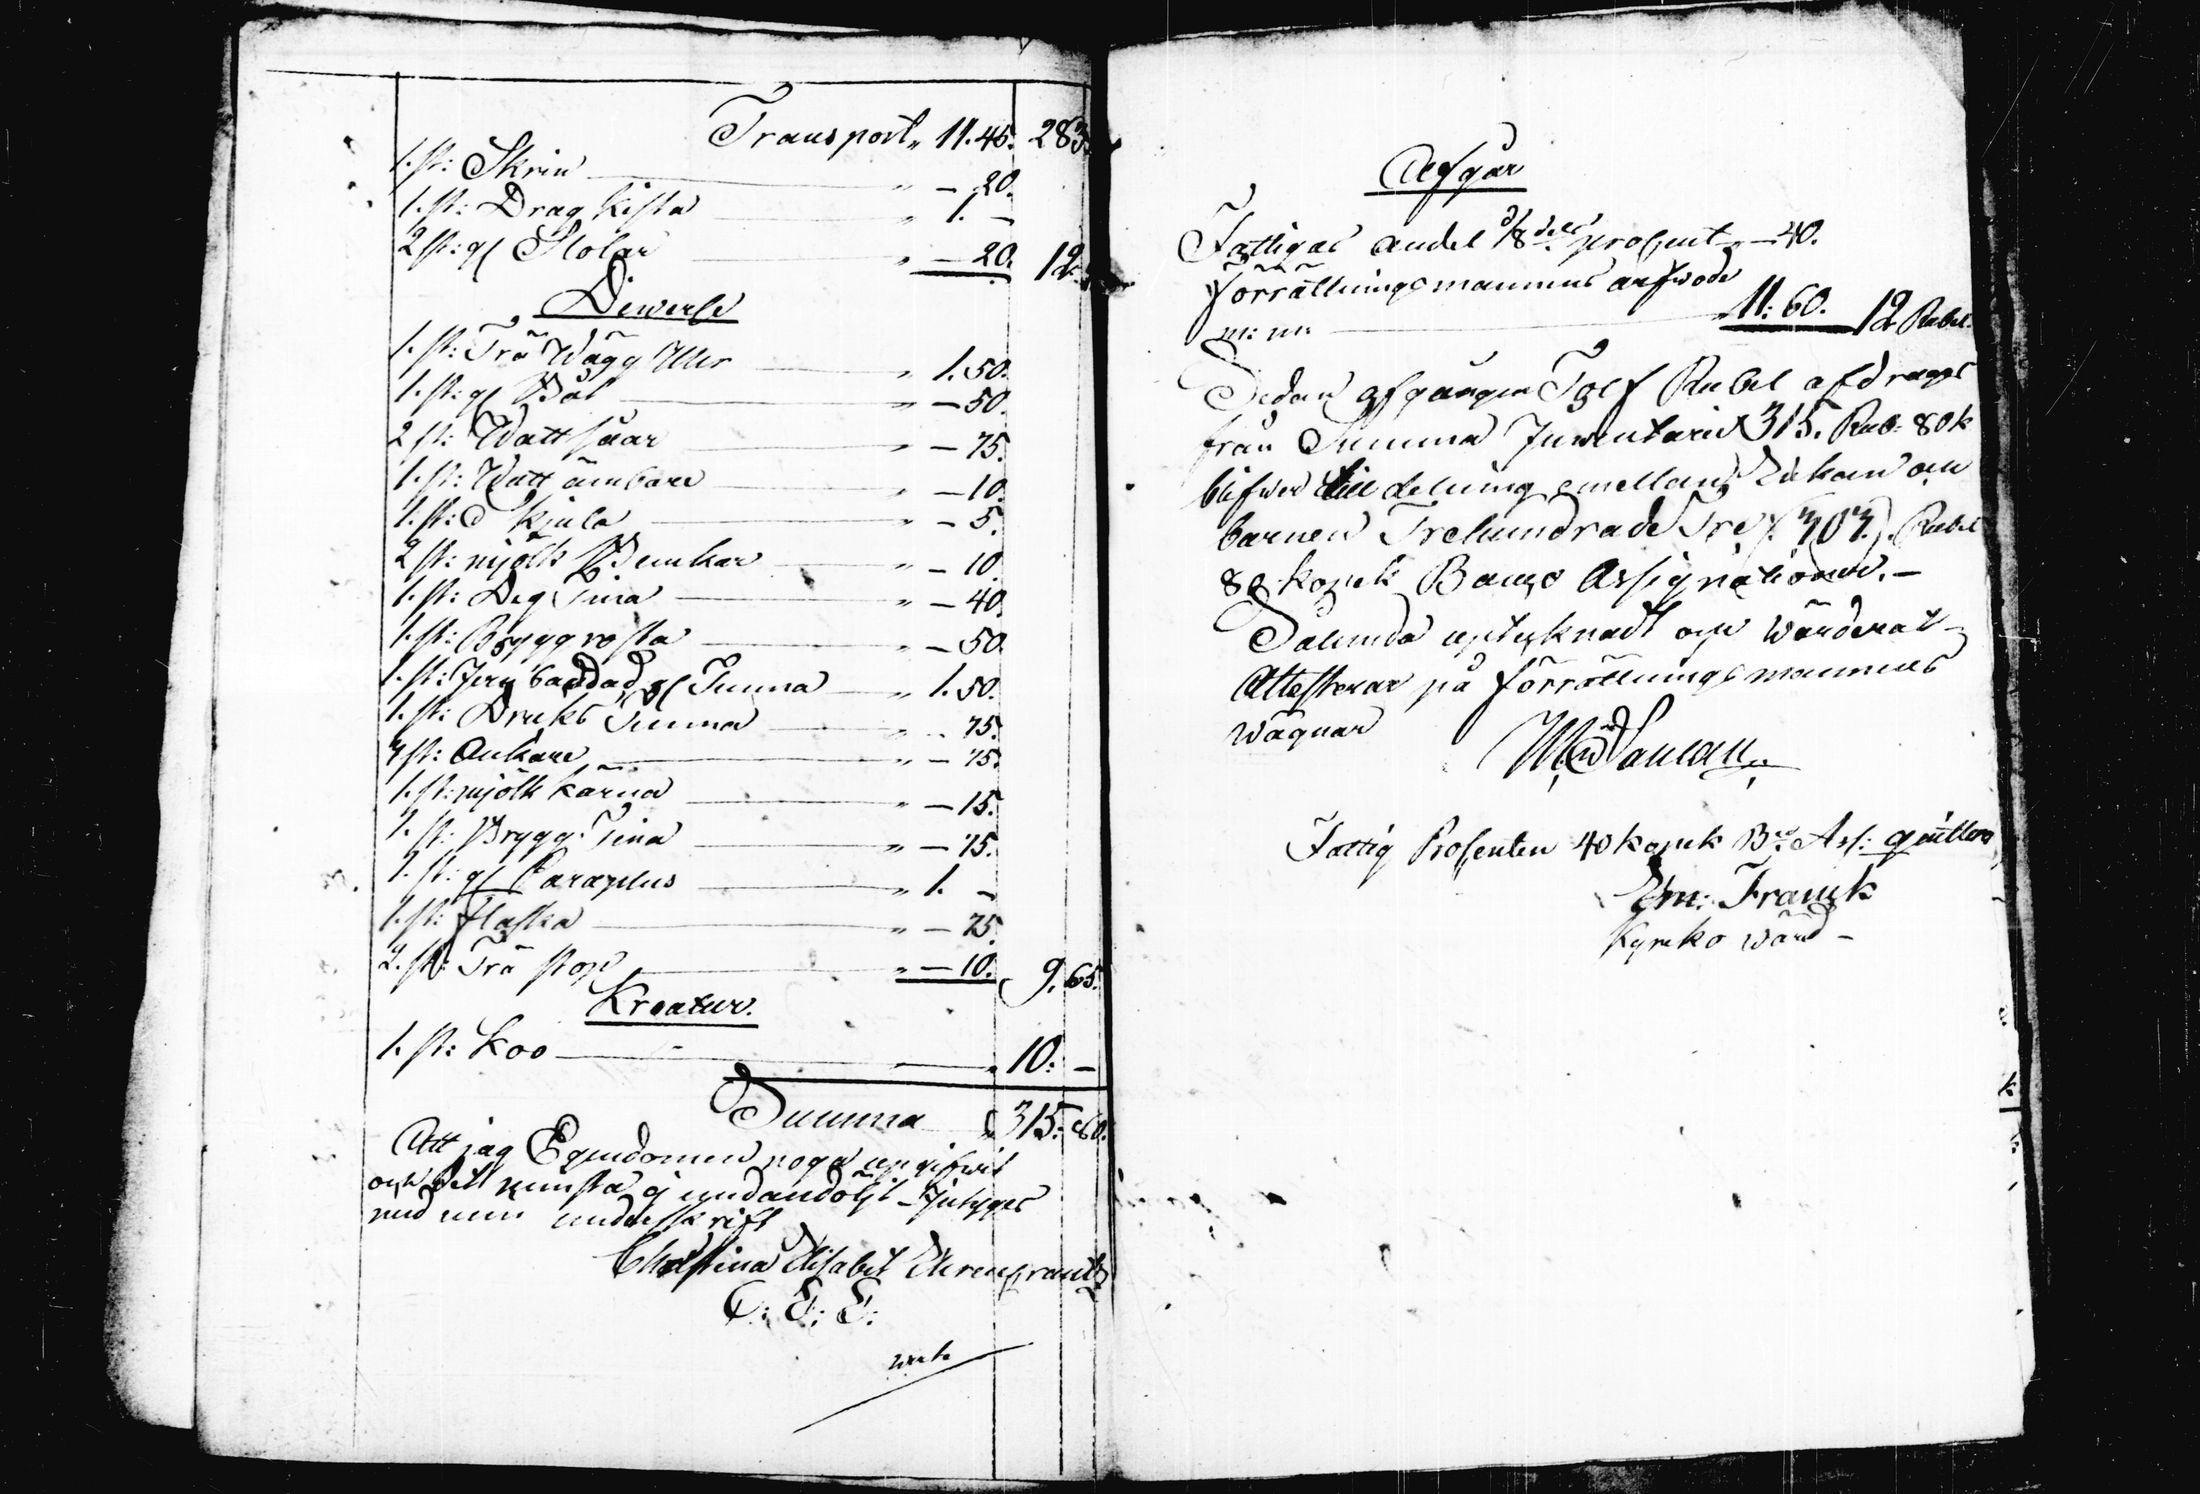 Transport „ 11. 45. 283
1. st: Skrin „ — 20.
1. st: Drag kista „ 1. —
2 st: gl Stolar „ — 20. 12.
Diwerse
1. st: Trä Wägg Uhr „ 1. 50.
1. st: gl Båt „ — 50.
2 st: Watt såar „ — 75.
1. st: Watt ämbare „ — 10.
1. st: d° kjula „ — 5.
2 st: mjölk Bunkar „ — 10.
1. st: Deg Tina „ — 40.
1. st: Brygg rosta „ — 50.
1. st: Jern bandad gl Tunna „ 1. 50.
1. st: Dricks Tunna „ — 75.
3 st: Ankare „ — 75.
1. st: mjölk kärna „ — 15.
1. st: Brygg Tina „ — 75.
1. st: gl Paraplus „ 1. —
1. st: flaska „ — 75.
2. st: Trä stop „ — 10. 9. 65.
Kreatur.
1. st: Koo „ 10: —
Summa 315: 80.
Att jag Egendomen noga upgifwit
och det minsta ej undandöljt — Intyges
med min underskrift
Christina Elisabet Ehrencrantz
C: E: E:
Afgår
Fattigas andel 1/8 dels prosent „ — 40.
förrättningsmannens arfwode
m: m: „ 11: 60. 12 Rubel.
Sedan afgången Tolf Rubel afdrages
från Summa Inwentarid 315. Rub: 80 k
blifwer till delning emellan Enkan och
barnen Trehundrade Tre (: 303 :) Rubel
80 kopek Banco Assignationer. —
Sålunda uptecknadt och wärderat
Attesterar på förrättningsmannens
wägnar
Fattig Prosenten 40 kopek Bco Ass: qvitteras
Em: Franck
Kyrko wärd —